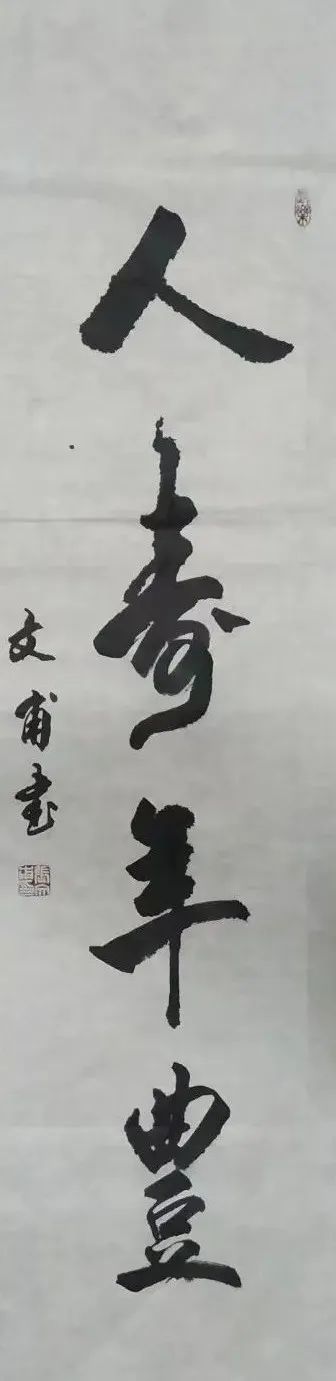 人壽年豐
文甫書